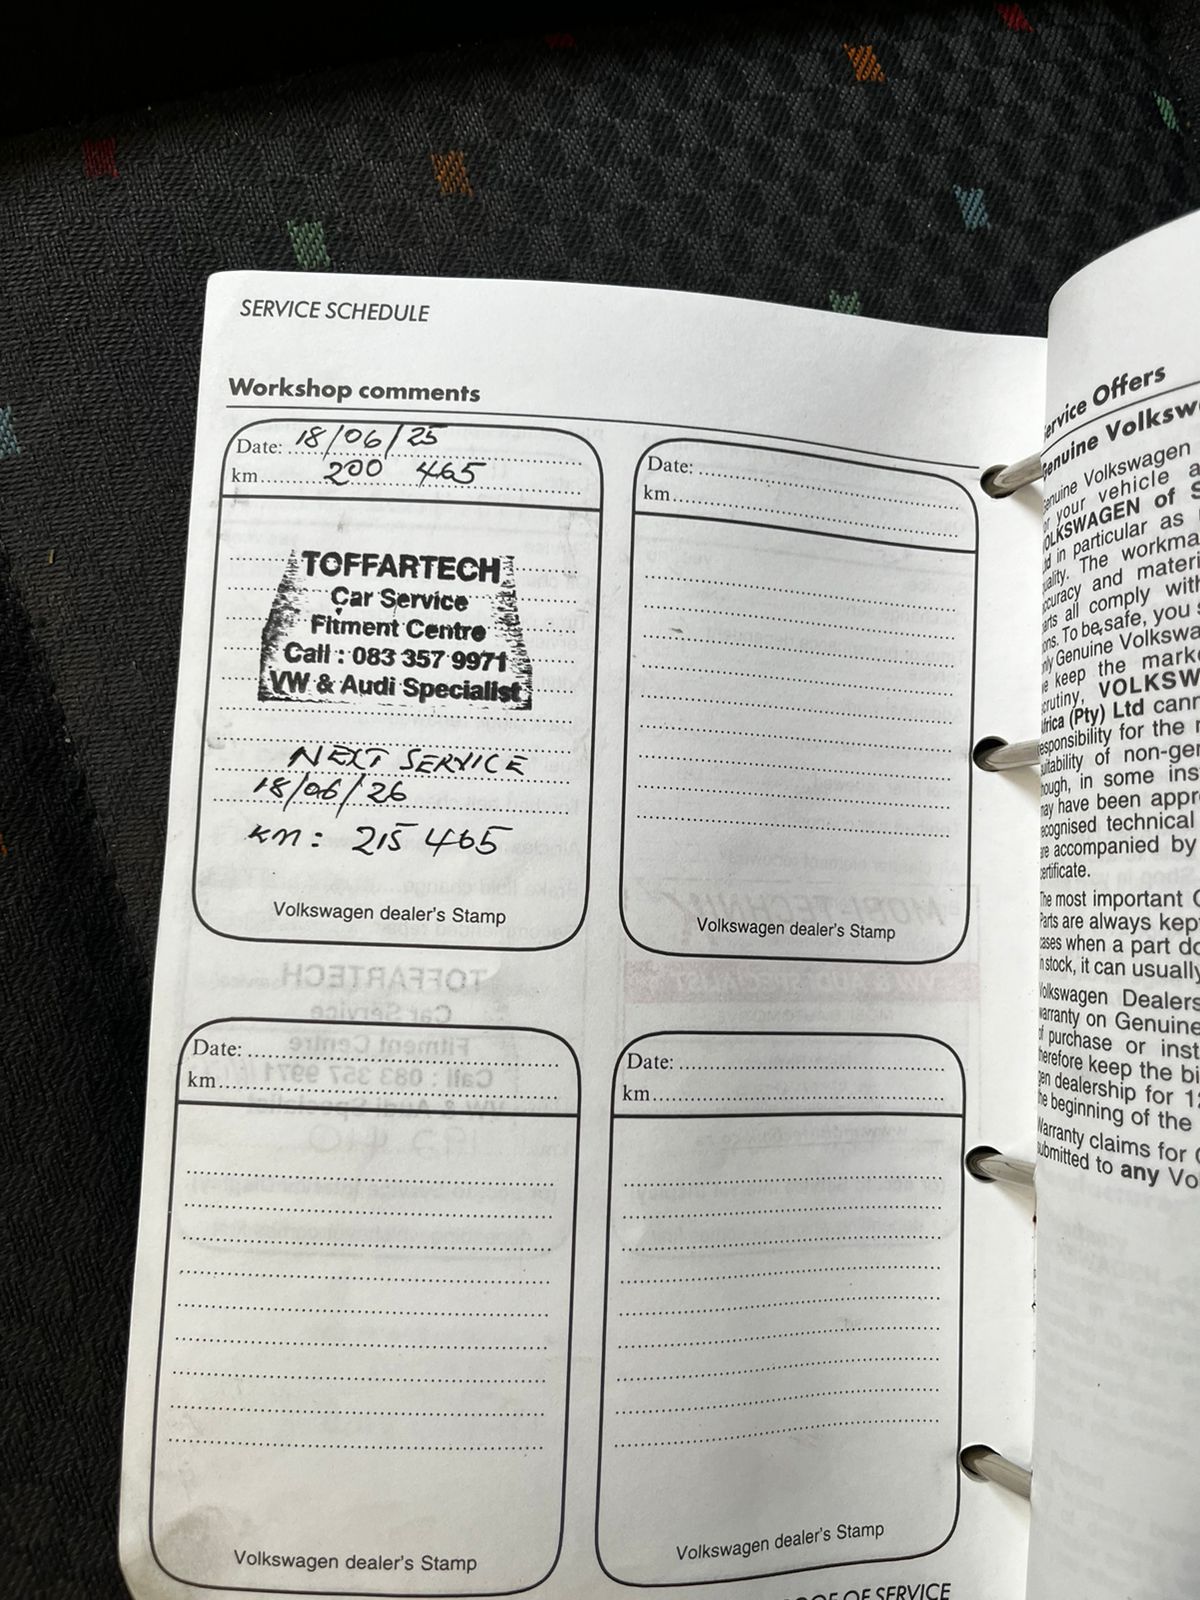 SERVICE SCHEDULE
Workshop comments
Date: 18/06/25
km 200 465
TOFFARTECH
Car Service
Fitment Centre
Call : 083 357 9971
VW & Audi Specialist
NEXT SERVICE
18/06/26
km: 215 465
Volkswagen dealer's Stamp
Date:
km
Volkswagen dealer's Stamp
Date:
km
Volkswagen dealer's Stamp
Date:
km
Volkswagen dealer's Stamp
OF SERVICE
Service Offers
Genuine Volksw
Genuine Volkswagen
your vehicle a
VOLKSWAGEN of S
in particular as
quality. The workma
accuracy and materi
parts all comply with
To be safe, you
only Genuine Volkswa
keep the marke
scrutiny, VOLKSW
Africa (Pty) Ltd cann
responsibility for the
suitability of non-gen
though, in some ins
may have been appr
recognised technical
are accompanied by
certificate.
The most important
Parts are always kep
cases when a part do
in stock, it can usually
Volkswagen Dealers
warranty on Genuine
of purchase or inst
therefore keep the bi
gen dealership for 12
the beginning of the
Warranty claims for
submitted to any Vo